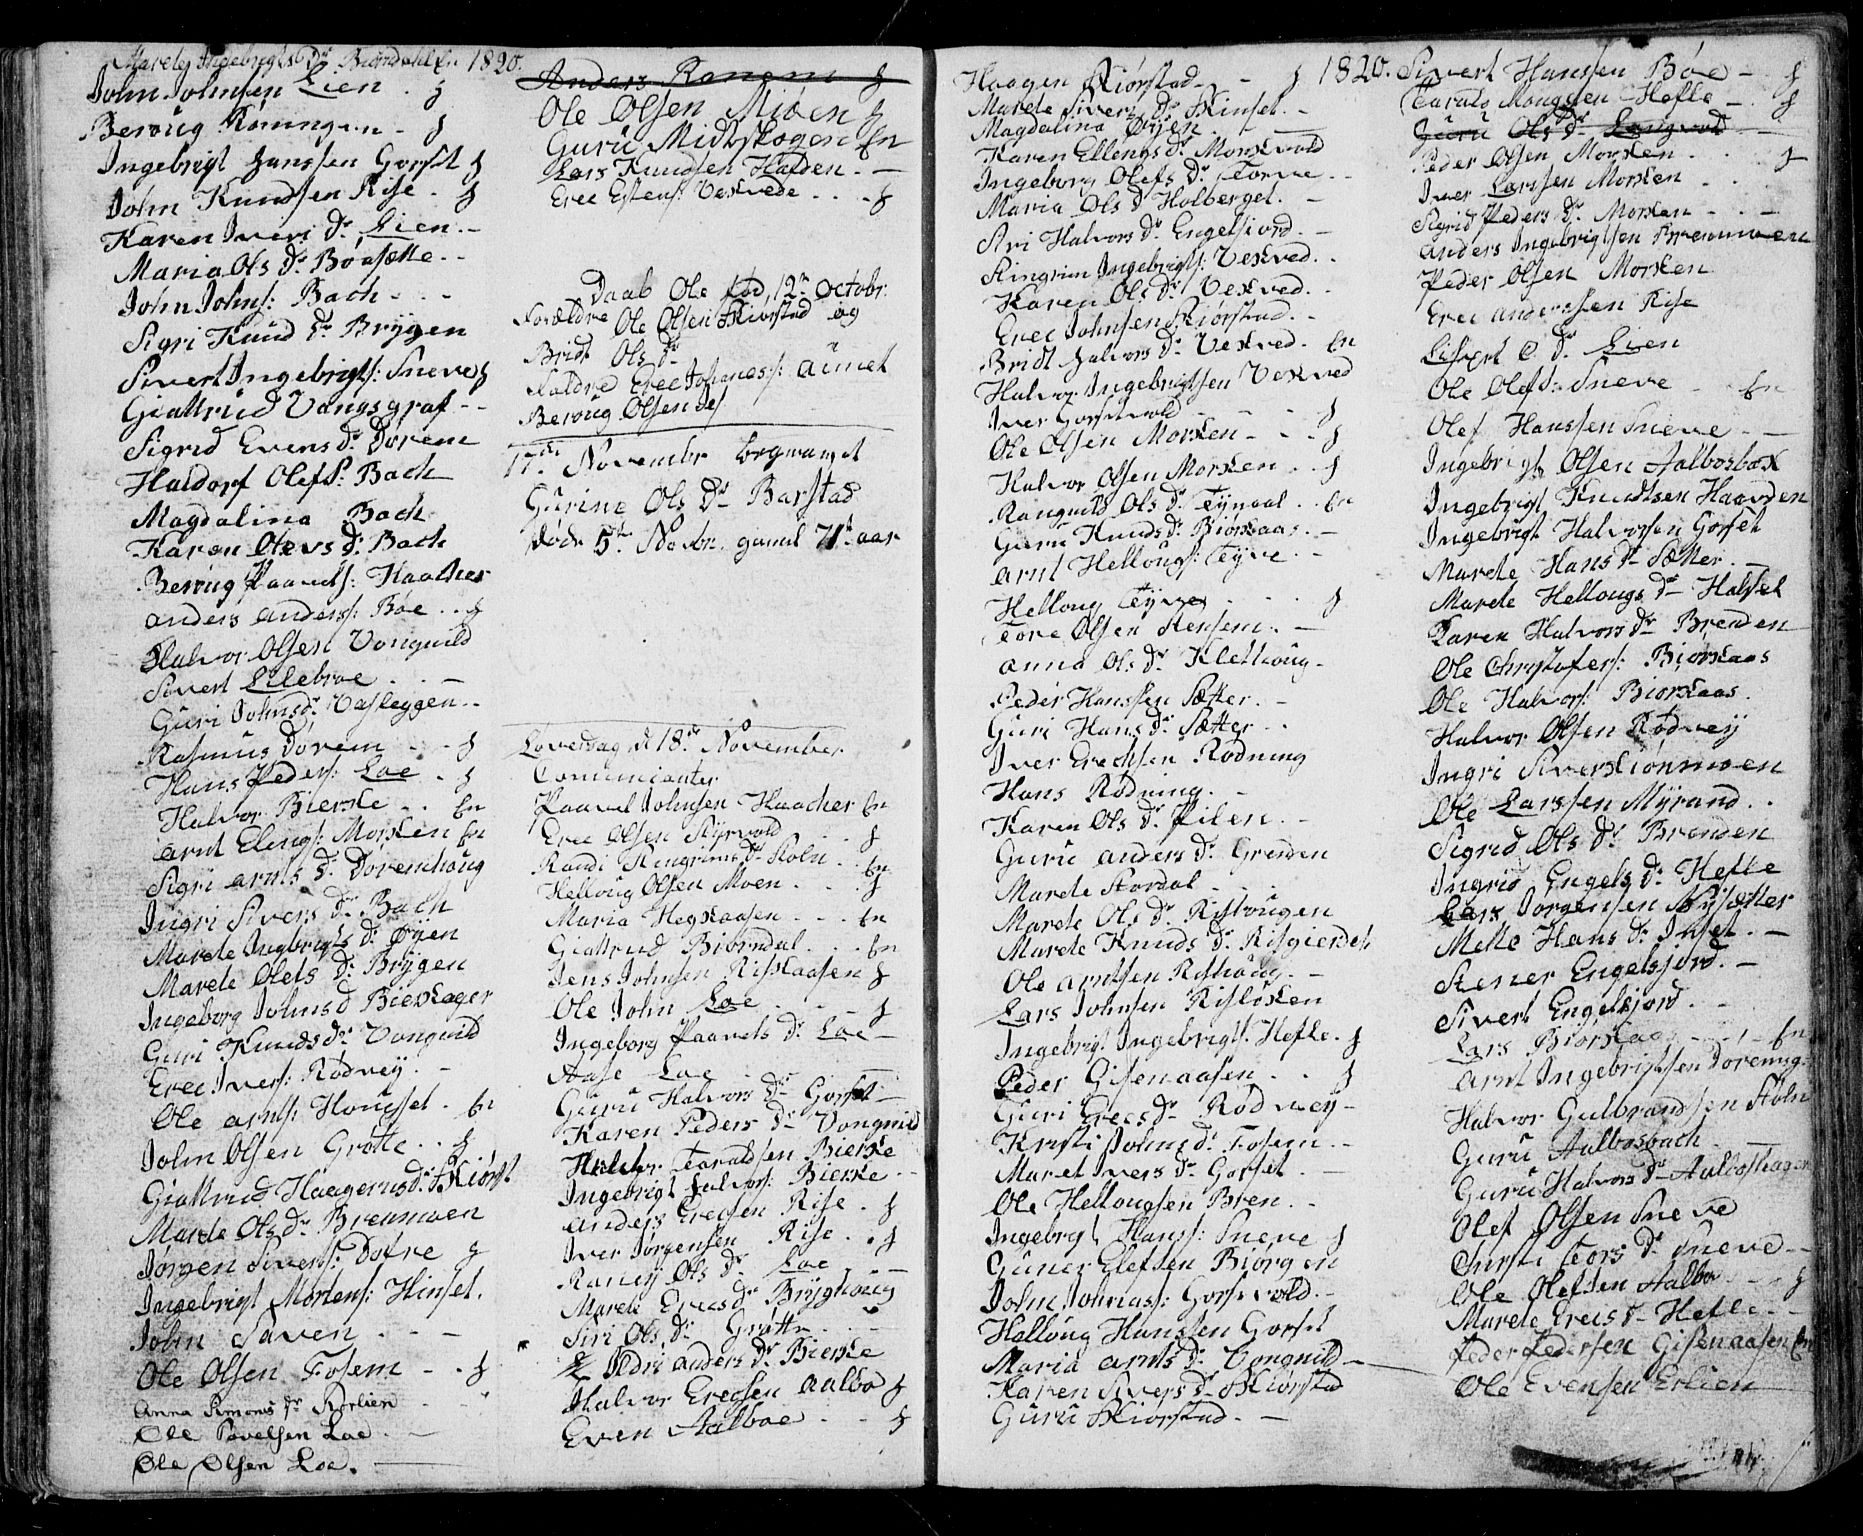 Marete Ingebrigts Dr Biørndahl En 1820.
John Johnsen Lien. g
Beroug Røningen - g
Ingebrigt Hanssen Gorset g
John Knudsen Rise. g
Karen Ivers Dr Lien. -
Maria Ols Dr Boesætte. -
John Johns: Bach
Sigri Knud Dr Brygen
Sivert Ingebrigts: Sneve g
Giattrud Vangsgraf - -
Sigrid Evens Dr Dørem
Haldorf Olefs: Bach
Magdalina Bach
Karen Olevs Dr Bach
Beroug Paavels: Haacker
Anders Anders: Bøe . . g
Halvor Olsen Vonguild
Sivert Lilebroe . . -
Guri Johns dr Vasleggen. -
Rasmus Dørem - - g
Hans Peders: Loe . g
Halvor Bierke . . En
Arnt Elings: Morken En
Sigri Arnts Dr Doremhoug
Ingri Sivers Dr Bach
Marete Ingebrigts Dr Øyen
Marete Olefs Dr Brygen
Ingeborg Johns D Bierkager
Guri Knuds Dr Vonguild
Erec Ivers: Rødvey. -
Ole Arnts: Hougset. En
John Olsen Grøtte . . g
Giattrud Haagens Dr Skiørst
Marete Ols Dr Brenmoen
Jørgen Sivers: Dofre g
Ingebrigt Mortens: Hinset.
John Saven . . -
Ole Olsen Fosem - . g
Anna Simons Dr Rørlien
Ole Pavelsen Loe. -
Ole Olsen Loe. -
Anders Ronem g
Ole Olsen Mioen g
Guru Midtskogen En
Lars Knudsen Hafden. -
Erec Estens: Vekvede . . . g
Daab Ole fød 12te Octobr.
Forældre Ole Olsen Skiørstad og
Bridt Ols Dr
Faldre Erec Johaness: Aunet
Beroug Olsen
17de November begravet
Gurine Ols Dr Barstad
døde 5te Novbr. gamel 71t aar
Løverdag d 18de November
Comunicanter
Paavel Johnsen Haacker En
Erec Olsen Kyrvold . . g
Randi Ringrims Dr Stoln . . En
Helloug Olsen Moen . . . g
Maria Hegkaasen . . . En
Giattrud Biørndal . . . En
Jens Johnsen Riskaasen g
Ole John Loe . . . g
Ingeborg Paavels Dr Loe -
Aase Loe -
Guru Halvors Dr Gorset -
Karen Peders Dr Vonguild
Halvor Toraldsen Bierke
Ingebrigt Halvors: Bierke
Anders Erecsen Rise . g
Iver Jørgensen Rise . . g
Raney Ols Dr Loe . -
Marete Erecs Dr Bryghoug
Siri Ols Dr Grøtte - -
Sidri Anders Dr Bierke
Halvor Erecsen Aalbo g
Even Aalboe . . g
Haagen Skiørstad - - g 1820.
Marete Sivers Dr Hinset. -
Magdalina Øyen . -
Karen Ellengs Dr Morkvold
Ingeborg Olefs Dr Torve. -
Maria Ols D Holberget. -
Ari Halvors Dr Engelsiord. -
Ringrim Ingebrigts: Vekved. .
Karen Ols Dr Vekved. .
Erec Johnsen Skiørstad. -
Bridt Halvors Dr Vekved. En
Halvor Ingebrigtsen Vekved
Iver Gorsetvold - - - g
Ole Olsen Morken - . . g
Halvor Olsen Morken . . g
Ranguild Ols Dr Tynaal . . En
Guru Knuds Dr Biørkaas . -
Arnt Hellougs: Tyve . -
Helloug Tyve . . . g
Tore Olsen Stensem. -
Anna Ols Dr Klethoug -
Peder Hanssen Sætter. -
Guri Hans Dr Sætter. . .
Iver Erechsen Rødning
Hans Rødning. . -
Karen Ols Dr Pilen. -
Guru Anders Dr Grinden
Marete Stordal . . .
Marete Ols Dr Rishougen
Marete Knuds Dr Risgierdet
Ole Arntsen Risthoug. -
Lars Johnsen Risløkken
Ingebrigt Ingebrigts: Hefle. g
Peder Gisenaasen . . g
Guri Erecs Dr Rødvey -
Kristi Johns Dr Fosem. -
Maret Ivers Dr Gorset
Ole Hellougsen Bren. -
Ingebrigt Hanss: Sneve g
Guner Elefsen Biørgen
John Jonass: Gorsetvold. -
Halloug Hanssen Gorset
Maria Arnts Dr Vonguild -
Karen Sivers Dr Skiørstad
Guru Skiørstad. -
Sivert Hanssen Bøe - g
Torald Mongsen Hefle - g
Guru Ols Dr Langvold
Peder Olsen Morken . . . g
Iver Larssen Morken . . .
Sigrid Peders Dr Morken - . -
Anders Ingebrigtsen Brenmoen
Peder Olsen Morken
Erec Anderssen Rise
Lien
Ole Olefs: Sneve - En
Olef Hanssen Sneve. - -
Ingebrigt Olsen Aalbosbak
Ingebrigt Knudtsen Haavden
Ingebrigt Halvorsen Gorset
Marete Hans Dr Sætter. -
Marete Hellougs Dr Halset
Karen Halvors Dr Brenden
Ole Christofers: Biørkaas
Ole Halvors: Biørkaas.
Halvor Olsen Rødvey
Ingri Sivers Kiønmoen
Ole Larssen Myrand. .
Sigrid Ols Dr Brenden
Ingrid Engels Dr Hefle
Lars Jørgensen Nysætter
Mette Hans Dr Inset. -
Stener Engelsjord. -
Sivert Engelsjord. .
Lars Biørkaas . . . En
Arnt Ingebrigtsen Doremyg.
Halvor Gulbrandsen Stoln
Guru Aalbosbach. -
Guru Halvors Dr Aalboshagen
Olef Olsen Sneve
Chirsti Tors Dr Sneve - -
Ole Olefsen Aalbo . . g
Marete Erecs Dr Hefle . . -
Peder Pedersen Gisenaasen En
Ole Evensen Erlien